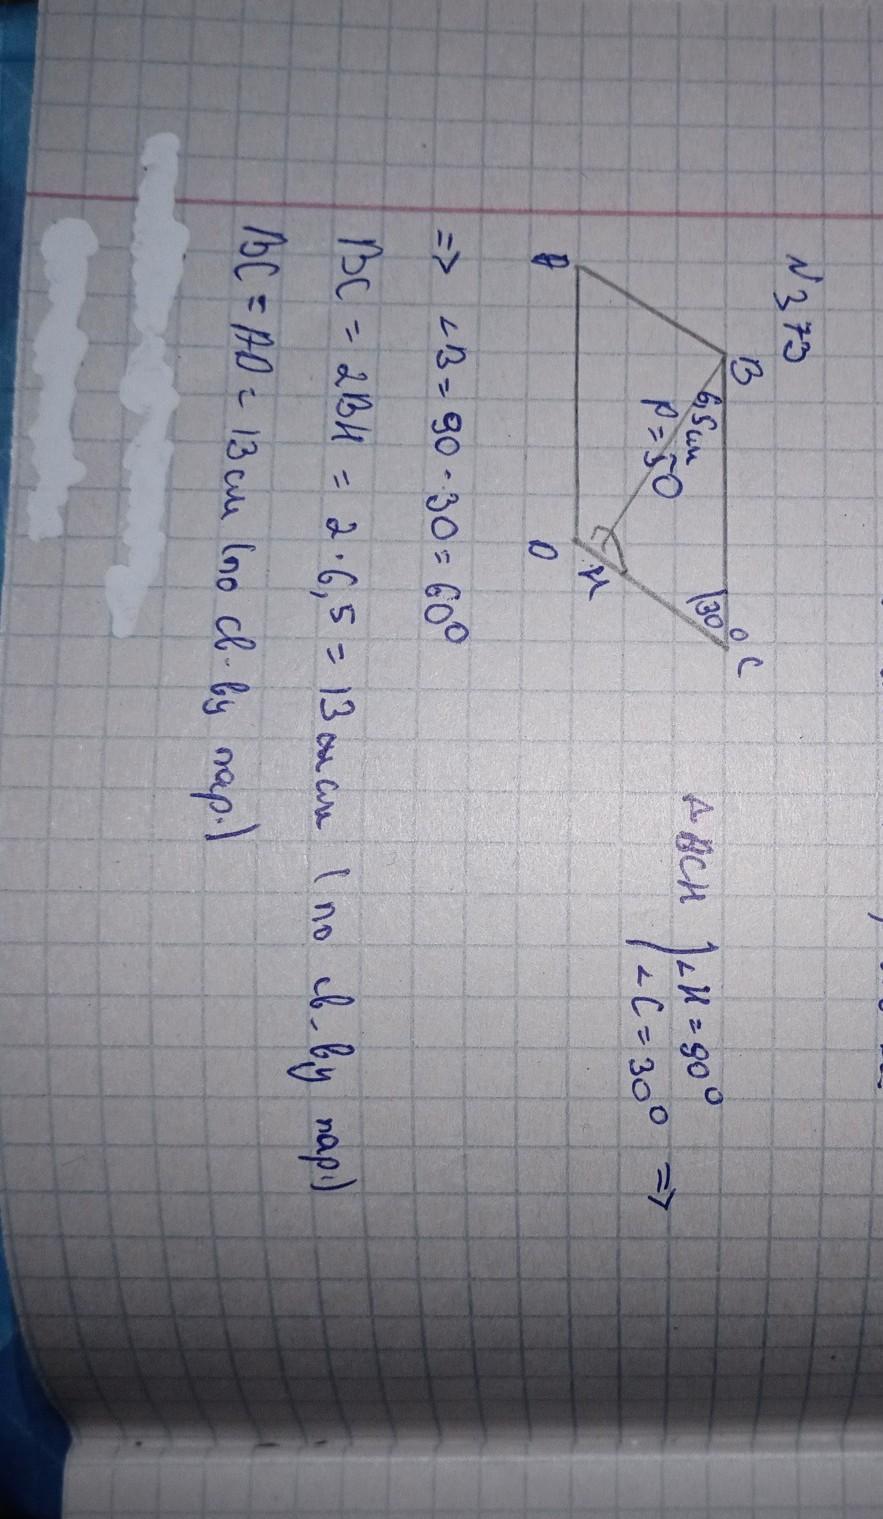 N 373
B
6,5 см
P = 50
30°
C
A
D
H
△ BCH { ∠H = 90°
∠C = 30° =>
=> ∠B = 90 - 30 = 60°
BC = 2BH = 2 · 6,5 = 13 см (по св-ву пар.)
BC = AD = 13 см (по св-ву пар.)